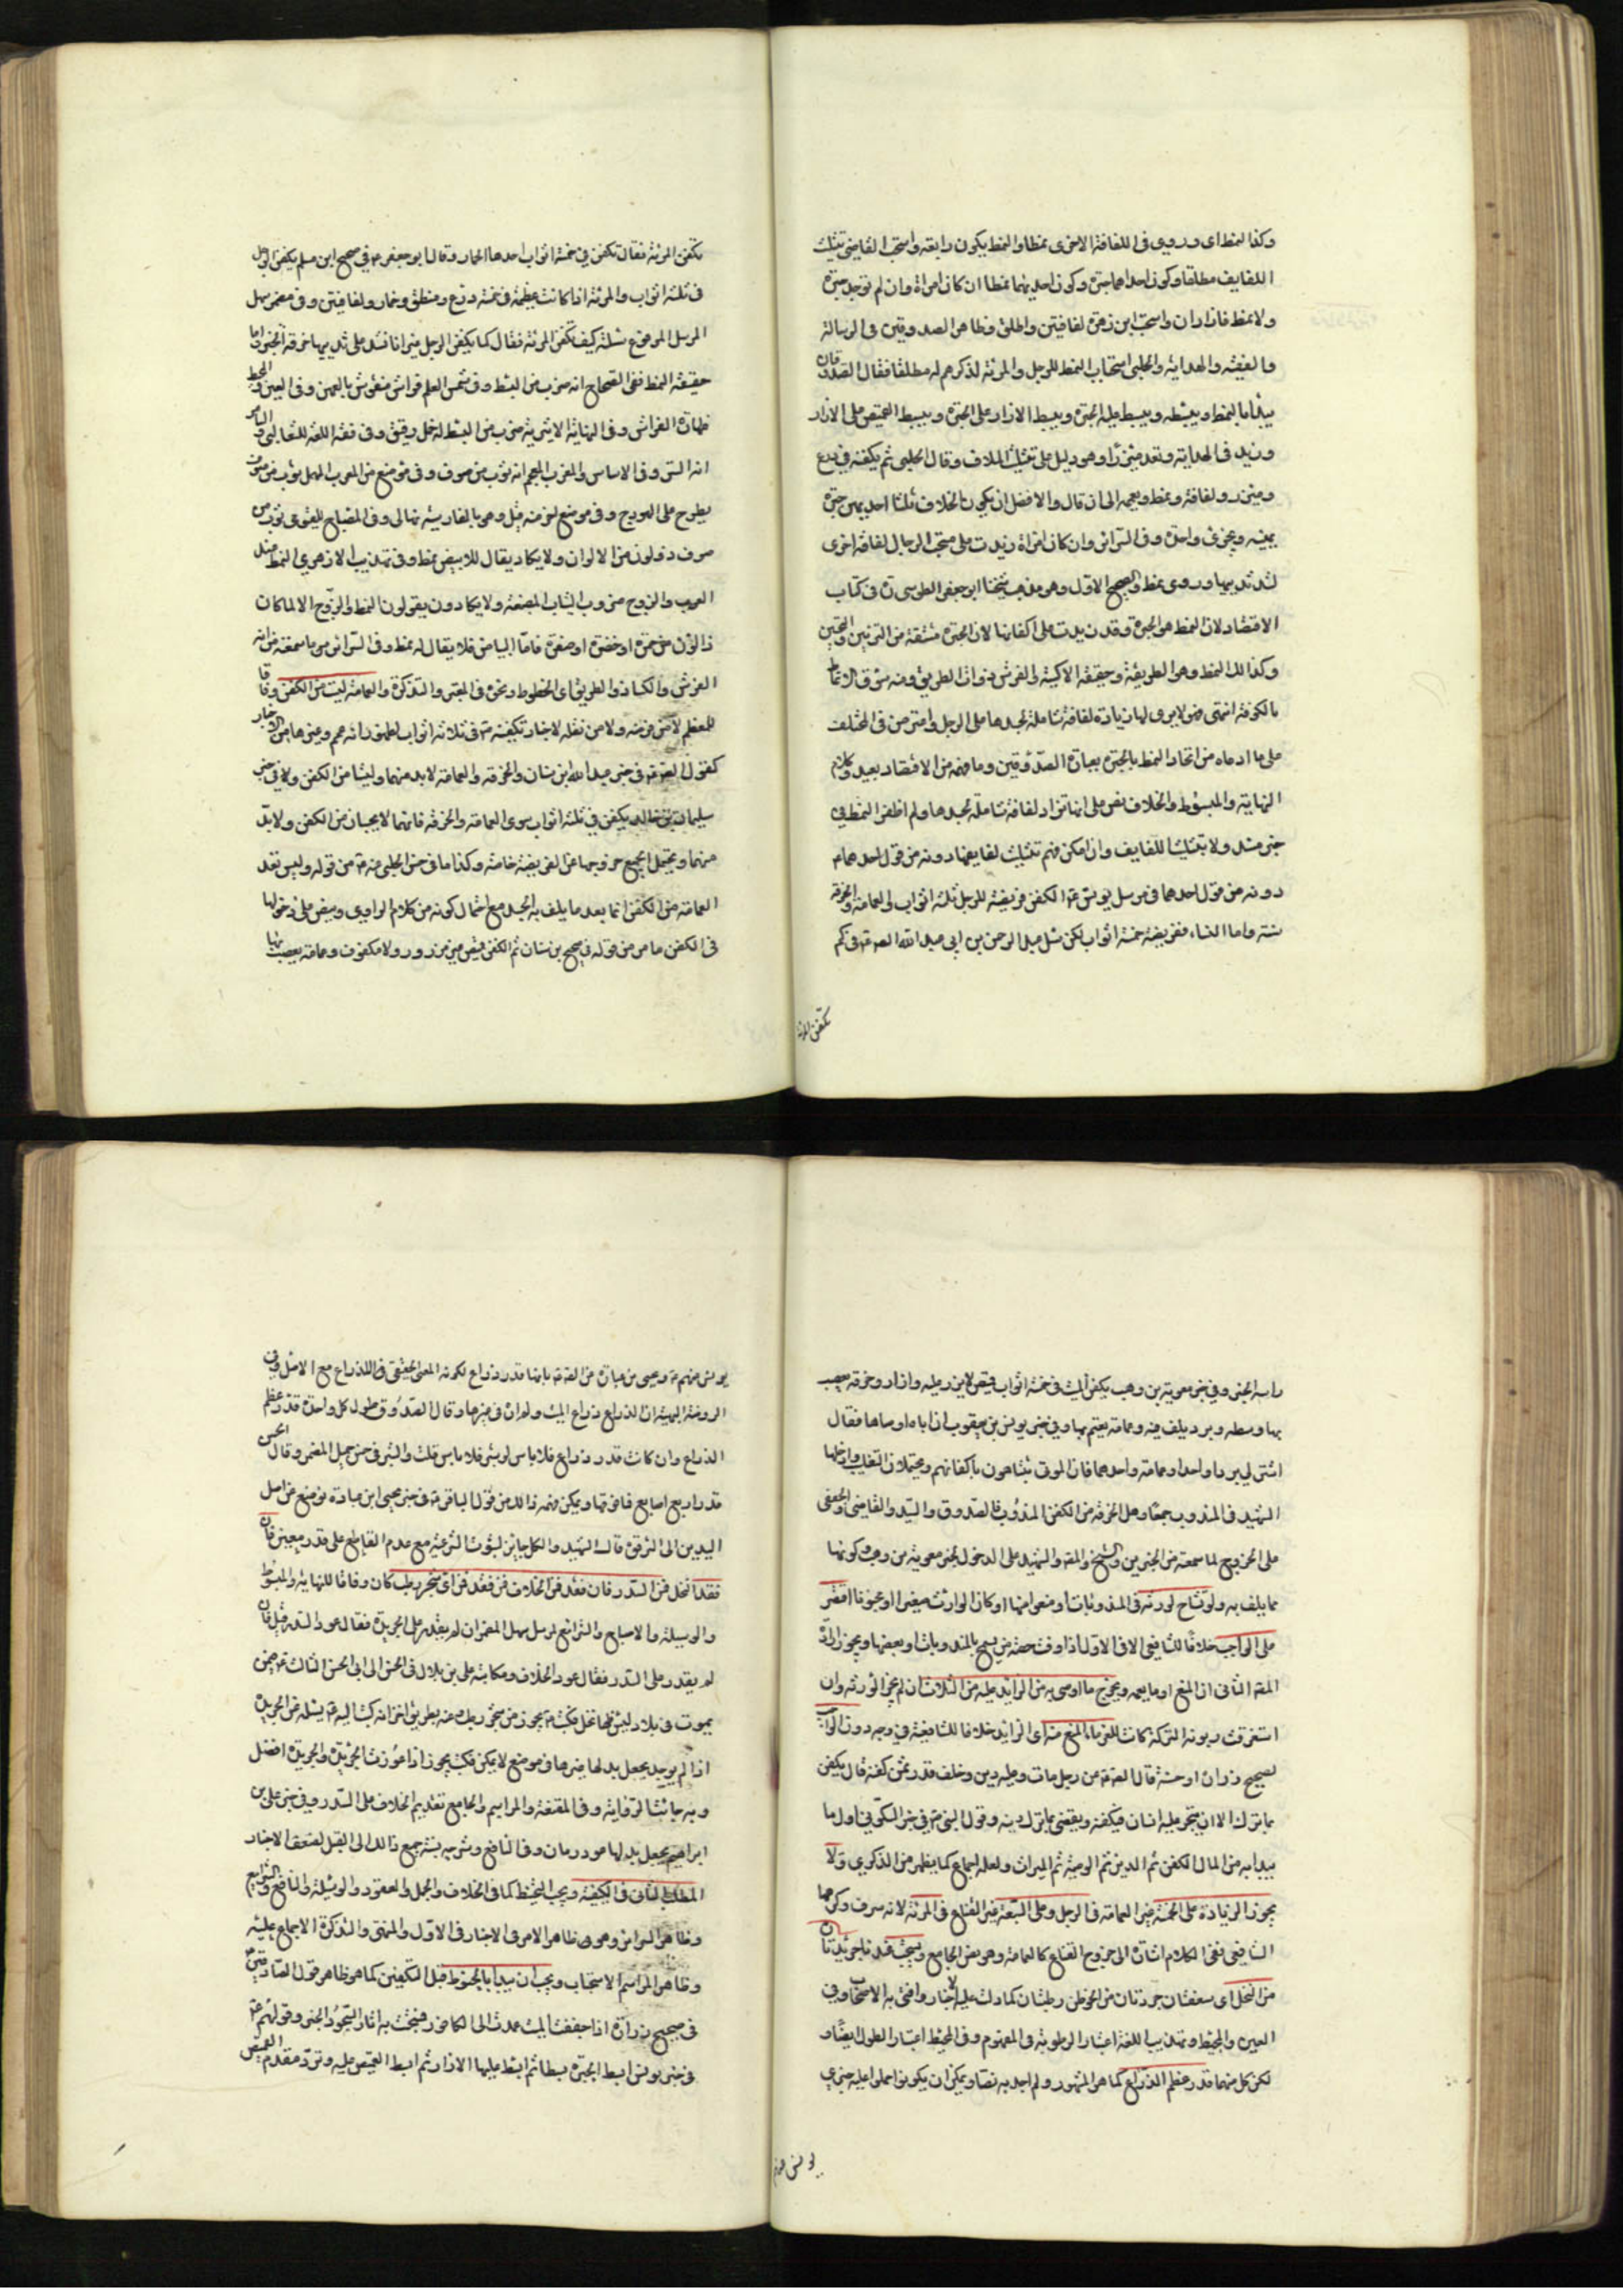 وكذا النمط اى وروى فى اللفافة الاخرى نمطا والنمط يكون رابعة واستحب القاضى تثليث
اللفايف مطلقا وكون احدها حبرة وكون احديهما نمطا ان كان امراة وان لم توجد حبرة
ولا نمط فازاران واستحب ابن زهرة لفافتين واطلق وظاهر الصدوقين فى الرسالة
والفقيه والهداية والحلبى استحباب النمط للرجل والمرئة لذكرهم له مطلقا فقال الصدوقان
يبدأ بالنمط ويبسطه ويبسط عليه الحبرة ويبسط الازار على الحبرة ويبسط القميص على الازار
وزيد فى الهداية وهو دليل على تثليث اللفاف وقال الحلبى ثم يكفنه فى درع
ومئزر ولفافة ونمط ويعممه الى ان قال والافضل ان يكون الملاف ثلثا احديهن حبرة
يمنية ويجزى واحدة وفى السرائر وان كان امراة زيدت على مستحب الرجال لفافة اخرى
لشد ثدييها وروى نمط والصحيح الاول وهو مذهب شيخنا ابو جعفر الطوسى ره فى كتاب
الاقتصاد لان النمط هو الحبرة وقد زيدت على اكفانها لان الحبرة مشتقة من التزيين والتحسين
وكذلك النمط وهو الطريقة وحقيقته الاكسية والفرش ذوات الطريق ومنه سوق الانماط
بالكوفة انتهى فهو لا يرى لها زيادة لفافة شاملة لجسدها على الرجل واعترض فى المختلف
على ما ادعاه من اتحاد النمط بالحبرة بعبارة الصدوقين وما فهمه من الاقتصاد بعيد وكلام
النهاية والمبسوط والخلاف نص على انها تزاد لفافة شاملة لجسدها ولم اظفر النمط فى
خبر مسند ولا بتثليث اللفايف وان امكن فهم تثليث لفايفها دونه من قول احدهما م
دونه من قول احدهما فى مرسل يونس ع الكفن فريضة للرجل ثلثة اثواب والعمامة والخرقة
سنة واما النساء ففريضة خمسة اثواب لكن سئل عبد الرحمن بن ابى عبد الله الصادق ع فى كم
تكفن المرئة
تكفن المرئة فقال تكفن فى خمسة اثواب احدها الخمار وقال ابو جعفر ع فى صحيح ابن مسلم يكفن الرجل
فى ثلثة اثواب والمرئة اذا كانت عظيمة فى خمسة درع ومنطق وخمار ولفافتين وفى مضمر سهل
المرسل المرفوع سئلته كيف تكفن المرئة فقال كما يكفن الرجل غير انا نشد على ثدييها خرقة الخبر واما
حقيقة النمط ففى الصحاح انه ضرب من البسط وفى شمس العلوم فراش منقوش بالعهن وفى العين والمحيط
ظهارة الفراش وفى النهاية الاثيرية ضرب من البسط له خمل رقيق وفى فقه اللغة للثعالبى
انه الستر وفى الاساس والمغرب المعجم انه ثوب من صوف وفى موضع من المعرب المهمل ثوب من صوف
يطرح على الهودج وفى موضع وهى بالفارسية نهالى وفى المصباح للفيومى ثوب من
صوف ذو لون من الالوان ولا يكاد يقال للابيض نمط وفى تهذيب الازهرى النمط عند
العرب والزوج ضروب الثياب المصبغة ولا يكادون يقولون النمط والزوج الا لما كان
ذا لون من حمرة او خضرة او صفرة فاما البياض فلا يقال له نمط وفى السرائر مر ما سمعته من انه
الفرش والكساء ذو الطريق اى الخطوط ونحوه فى المعتبر والتذكرة والعمامة ليست من الكفن وفاقا
للمعظم
كقول الصادق ع فى خبر عبد الله بن سنان والخرقة والعمامة لا بد منهما وليستا من الكفن وله فى خبر
سليمان بن خالد يكفن فى ثلثة اثواب سوى العمامة والخرقة فانهما لا يجبان من الكفن ولا بد
منهما ويحتمل الجميع خروجهما عن الفريضة خاصة وكذا ما فى حسن الحلبى عنه ع من قوله وليس تعد
العمامة من الكفن انما يعد ما يلف به الجسد مع احتمال كونه من كلام الراوى وينص على دخولها
فى الكفن ما مر من قوله فى صحيح بن سنان ثم الكفن قميص غير مزرور ولا مكفوف وعمامة يعصب بها
راسه الخبر وفى خبر معوية بن وهب يكفن الميت فى خمسة اثواب قميص لا يزر عليه وازار وخرقة يعصب
بها وسطه وبرد يلف فيه وعمامة يعتم بها وفى خبر يونس بن يعقوب ان اباه اوصاه فقال
اشتر لى بردا واحدا وعمامة واحدهما فان الموتى يتباهون باكفانهم ويحتملان التغليب وادخلها
الشهيد فى المندوب جمعا وهل الخرقة من الكفن المندوب فالصدوق والسيد والقاضى والجعفى
على الخروج لما سمعته من الخبرين والشيخ والمصنف والشهيد على الدخول لخبر معوية بن وهب وكونها
مما يلف به ولو تشاح الورثة فى المندوبات او منعوا منها او كان الوارث صغيرا او مجنونا اقتصر
على الواجب خلافا للشافعى الا فى الاول اذا وفت حصة من يسمح بالمندوبات او بعضها ويجوز الرد
المصنف الثانى ان المنع اوما يعمه ويخرج ما اوصى به من الزايد عليه من الثلث ان لم يجز الورثة وان
استغرقت ديونه التركة كانت للغرماء المنع منه اى الزايد خلافا للشافعية فى وجه دون الواجب
لصحيح زرارة او حسنة قال الصادق ع من رجل مات وعليه دين وخلف قدر ثمن كفنه قال يكفن
بما ترك الا ان يتجر عليه انسان فيكفنه ويقضى بما ترك دينه وقول النبى ع فى خبر السكونى اول ما
يبدا به من المال الكفن ثم الدين ثم الوصية ثم الميراث ولعله اجماع كما يظهر من الذكرى ولا
يجوز الزيادة على الخمسة غير العمامة فى الرجل وعلى السبعة غير القناع فى المرئة لانه سرف وكرهها
الشافعى ففى الكلام اشارة الى خروج القناع كالعمامة وهو نص الجامع ويستحب جريدتان
من النخل اى سعفتان جردتان من الخوص رطبتان كما دلت عليه الاخبار وافتى به الاصحاب وفى
العين والمحيط وتهذيب اللغة اعتبار الرطوبة فى المفهوم وفى المحيط اعتبار الطول ايضا و
لكن كل منهما قدر عظم الذراع كما هو المشهور ولم اجد به نصا ويمكن ان يكونوا حملوا عليه خبرى
يونس عنهم
يونس عنهم ع ويحيى بن عبادة عن الصادق ع بانها قدر ذراع لكونه المعنى الحقيقى فى الذراع مع الاصل وفى
الروضة البهية ان الذراع ذراع الميت ولم ار فى غيرها وقال الصدوق طول كل واحدة قدر عظم
الذراع وان كانت قدر ذراع فلا باس او شبر فلا باس قلت والشبر فى حسن جميل المضمر وقال الحسن
قدر اربع اصابع فما فوقها ويمكن فهمه ذلك من قول الباقر ع فى خبر يحيى ابن عبادة توضع من اصل
اليدين الى الترقوة قال الشهيد والكل جائز لثبوت الشرعية مع عدم القاطع على قدر معين فان
فقدا نخل فمن السدر فان فقد فمن الخلاف فان فقد فمن اى شجر رطب كان وفاقا للنهاية والمبسوط
والوسيلة والاصباح والشرائع لمرسل سهل المضمر ان لم يقدر على الجريدة فقال عود السدر قيل فان
لم يقدر على السدر فقال عود الخلاف ومكاتبة على بن بلال فى الحسن الى ابى الحسن الثالث ع عمن
يموت فى بلاد ليس فيها نخل فكتب ع يجوز من شجر رطب وعنه بطريق اخر انه كتب اليه ع يسئله عن الجريدة
اذا لم يوجد يجعل بدلها غيرها فى موضع لا يمكن فكتب يجوز اذا اعوزت الجريدة والجريدة افضل
وبه جائت الرواية وفى المقنعة والمراسم والجامع تقديم الخلاف على السدر وفى خبر على بن
ابراهيم يجعل بدلها عود رمان وفى النافع وشرحه نسبة جميع ذلك الى القيل لضعف الاخبار
المطلب الثانى فى الكيفية ويجب التحنيط كما فى الخلاف والجمل والعقود والوسيلة والنافع والشرايع
وظاهر السرائر وهو ظاهر الامر فى الاخبار فى الاول والمنتهى والتذكرة الاجماع عليه
وظاهر المراسم الاستحباب ويجب ان يبدأ بالحنوط قبل التكفين كما هو ظاهر قول الصادق ع
فى صحيح زرارة اذا جففت الميت عمدت الى الكافور فمسحت به اثار السجود الخبر وقولهم ع
فى خبر يونس ابسط الحبرة بسطا ثم ابسط عليها الازار ثم ابسط القميص عليه وترد مقدم القميص